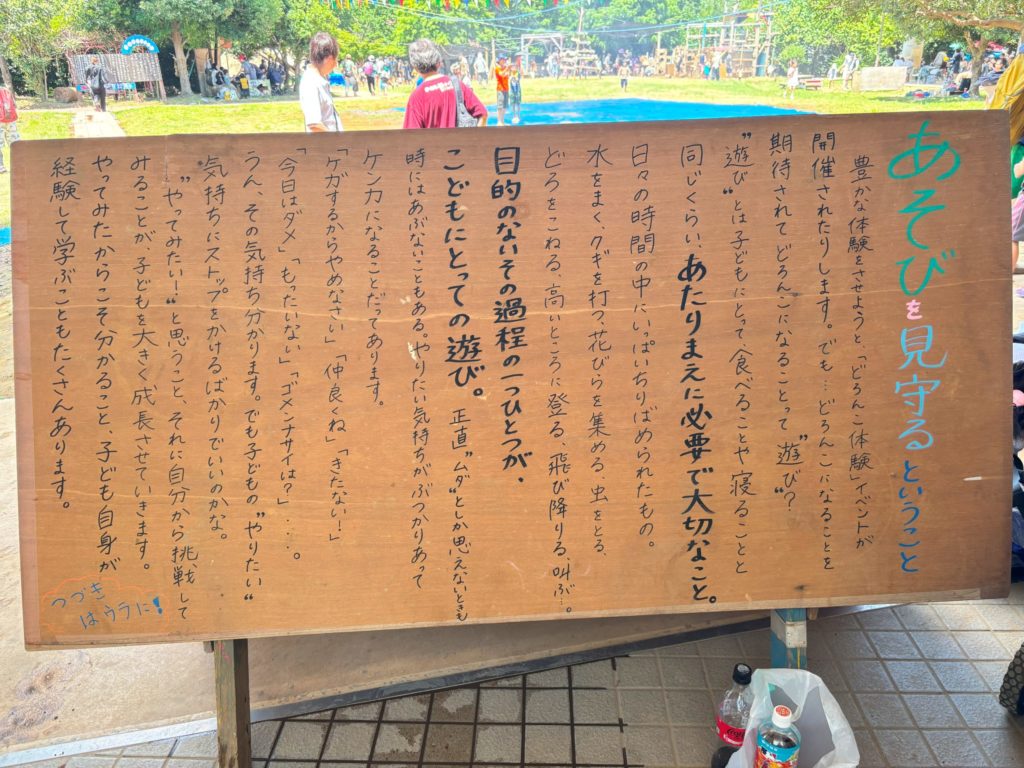 あそびを見守るということ
豊かな体験をさせようと、「どろんこ体験」イベントが
開催されたりします。でも…どろんこになることを
期待されてどろんこになることって"遊び"?
"遊び"とは子どもにとって、食べることや寝ることと
同じくらい、あたりまえに必要で大切なこと。
日々の時間の中にいっぱいちりばめられたもの。
水をまく、クギを打つ、花びらを集める、虫をとる、
どろをこねる、高いところに登る、飛び降りる、叫ぶ…。
目的のないその過程の一つひとつが、
こどもにとっての遊び。正直"ムダ"としか思えないときも
時にはあぶないこともある。やりたい気持ちがぶつかりあって
ケンカになることだってあります。
「ケガするからやめなさい」「仲良くね」「きたない!」
「今日はダメ」「もったいない」「ゴメンナサイは?」・・・。
うん、その気持ち分かります。でも子どもの"やりたい"
気持ちにストップをかけるばかりでいいのかな。
"やってみたい!"と思うこと、それに自分から挑戦して
みることが子どもを大きく成長させていきます。
やってみたからこそ分かること、子ども自身が
経験して学ぶこともたくさんあります。
つづき
はウラに!